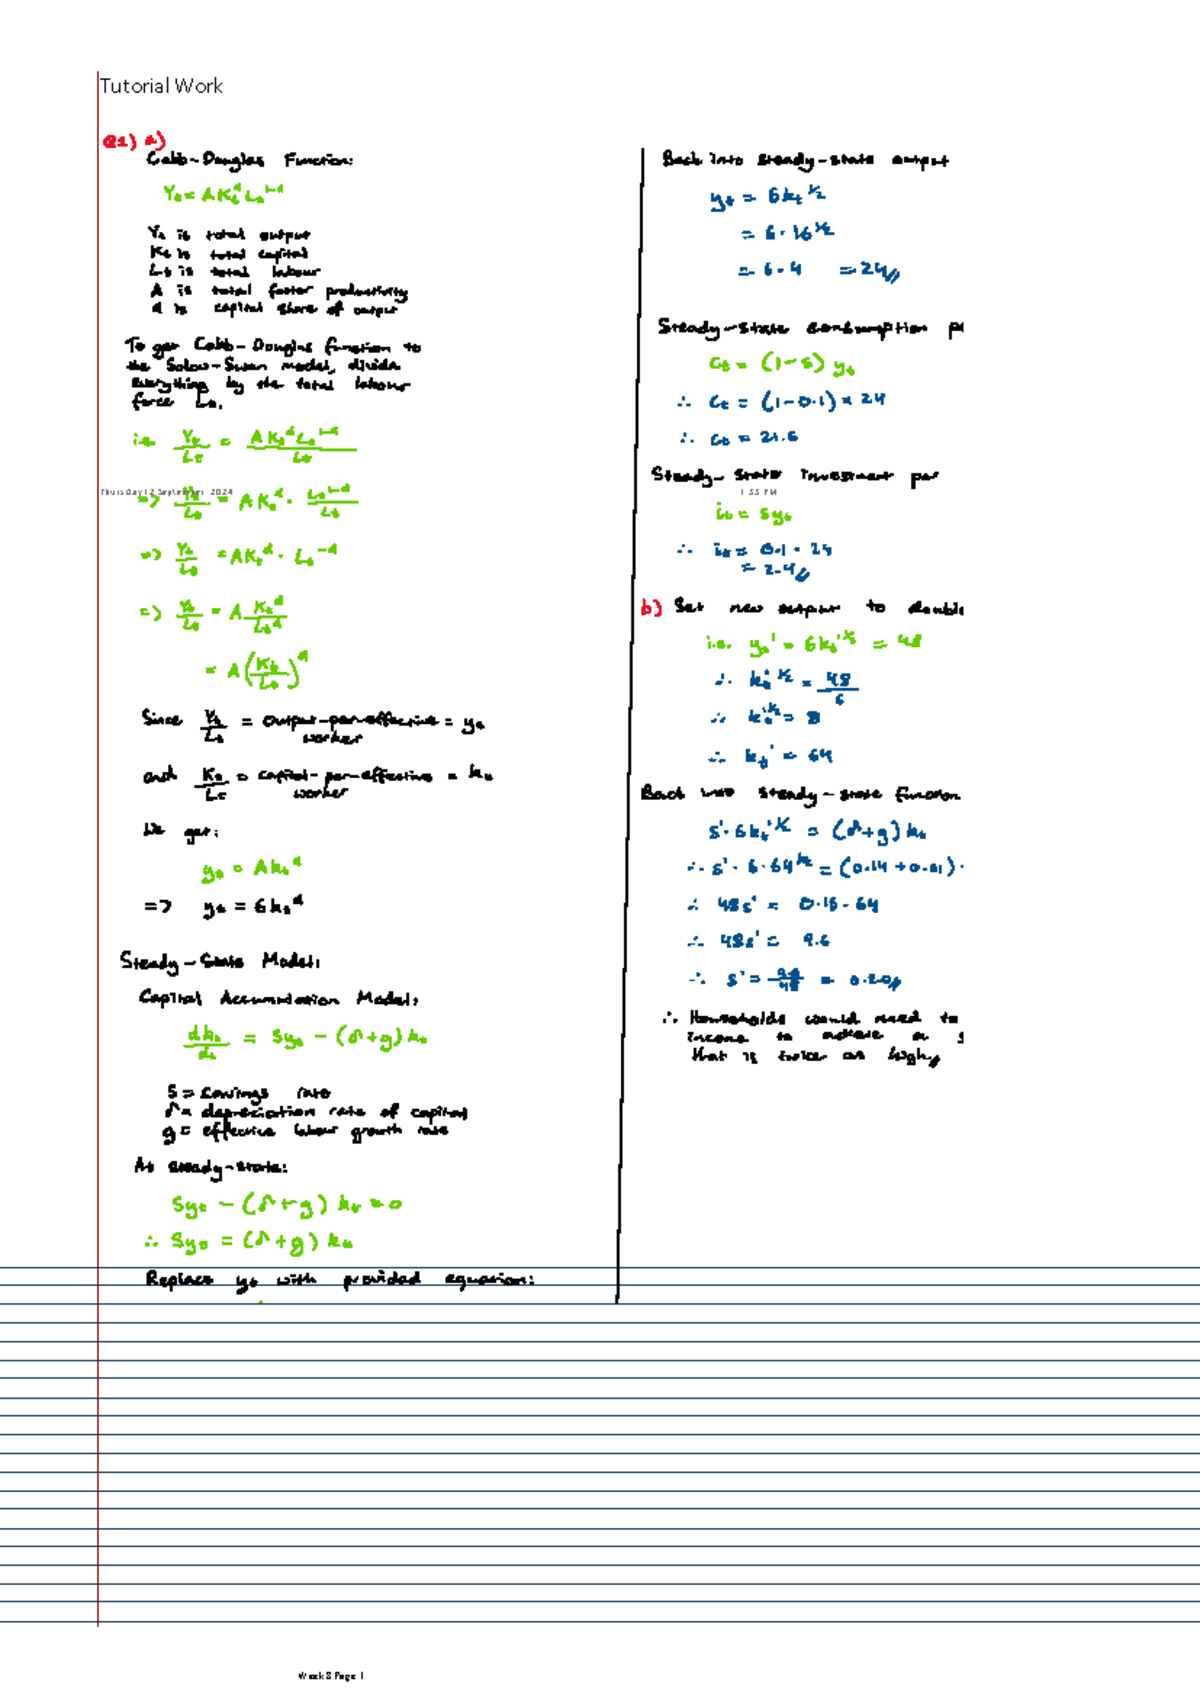 Tutorial Work
Q1) a)
Cobb-Douglas Function:
Yt = AKt^α Lt^1-α
Yt is total output
Kt is total capital
Lt is total labour
A is total factor productivity
α is capital share of output
To get Cobb-Douglas function to
the Solow-Swan model, divide
everything by the total labour
force Lt.
i.e. Yt/Lt = AKt^α Lt^1-α/Lt
Thursday, 12 September 2024
=> Yt/Lt = AKt^α · Lt^1-α/Lt
=> Yt/Lt = AKt^α · Lt^-α
=> Yt/Lt = A Kt^α/Lt^α
= A(Kt/Lt)^α
Since Yt/Lt = output-per-effective worker = yt
and Kt/Lt = capital-per-effective worker = kt
We get:
yt = Akt^α
=> yt = 6kt^α
Steady-State Model:
Capital Accumulation Model:
dkt/dt = syt - (δ+g)kt
s = savings rate
δ = depreciation rate of capital
g = effective labour growth rate
At steady-state:
syt - (δ+g)kt = 0
∴ syt = (δ+g)kt
Replace yt with provided equation:
Back into steady-state output
yt = 6kt^1/2
= 6·16^1/2
= 6·4 = 24//
Steady-state consumption
ct = (1-s)yt
∴ ct = (1-0.1) × 24
∴ ct = 21.6
Steady-state investment per
1:55 PM
it = syt
∴ it = 0.1 · 24
= 2.4//
b) Set new output to
i.e. yt' = 6kt'^1/2 = 48
∴ kt'^1/2 = 48/6
∴ kt'^1/2 = 8
∴ kt' = 64
Back into steady-state function
s'·6kt'^1/2 = (δ+g)kt
∴ s'·6·64^1/2 = (0.14+0.01)·
∴ 48s' = 0.15·64
∴ 48s' = 9.6
∴ s' = 9.6/48 = 0.20//
∴ Households would need to
income to achieve a
that is twice as high//
Week 8 Page 1